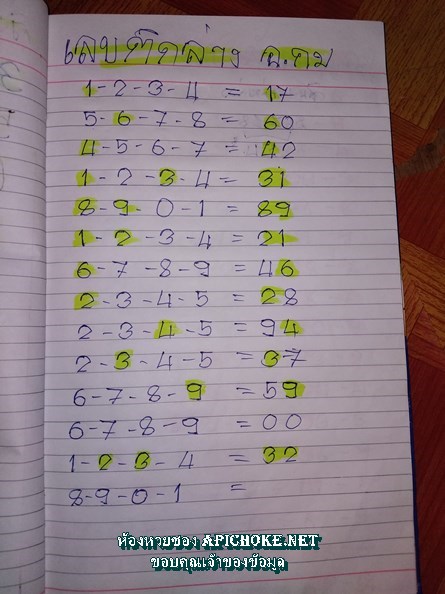 เลขติดล่าง อ.ถม
1-2-3-4 = 17
5-6-7-8 = 60
4-5-6-7 = 42
1-2-3-4 = 31
8-9-0-1 = 89
1-2-3-4 = 21
6-7-8-9 = 46
2-3-4-5 = 28
2-3-4-5 = 94
2-3-4-5 = 37
6-7-8-9 = 59
6-7-8-9 = 00
1-2-3-4 = 32
8-9-0-1 =
ห้องหวยซอง APICHOKE.NET
ขอบคุณเจ้าของข้อมูล